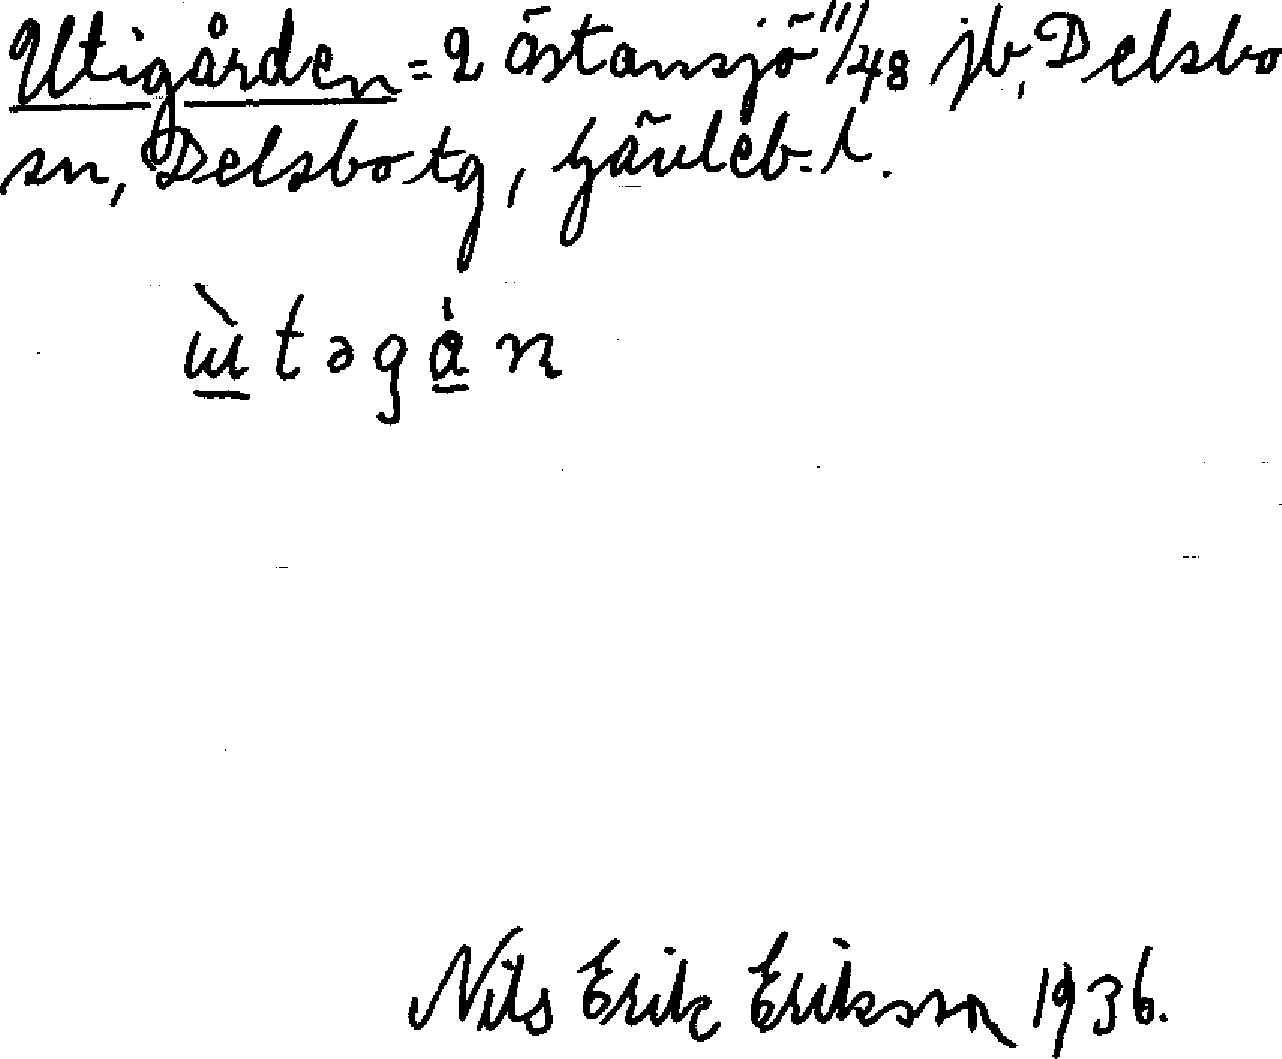 Utigården = 2 Östansjö 11/48 jb, Delsbo
sn, Delsbo tg, Gävleb. l.
ùtəgȧn
Nils Erik Eriksson 1936.